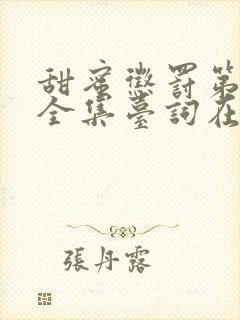 甜蜜懲罰第
全集臺詞在
張丹露